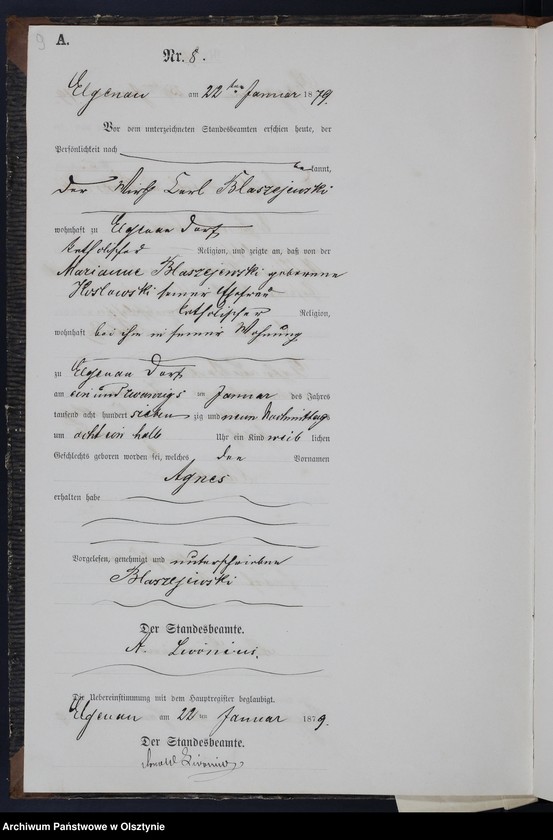 9
A.
Nr. 8.
Elgenau am 22ten Januar 1879.
Vor dem unterzeichneten Standesbeamten erschien heute, der
Persönlichkeit nach
be kannt,
der Wirth Carl Blaszejewski
wohnhaft zu Elgenau Dorf
katholischer Religion, und zeigte an, daß von der
Marianne Blaszejewski geborene
Koslowski seiner Ehefrau
katholischer Religion,
wohnhaft bei ihm in seiner Wohnung
zu Elgenau Dorf
am ein und zwanzigs ten Januar des Jahres
tausend acht hundert sieben zig und neun Nachmittags
um acht ein halb Uhr ein Kind weib lichen
Geschlechts geboren worden sei, welches den Vornamen
Agnes
erhalten habe
Vorgelesen, genehmigt und unterschrieben
Blaszejewski
Der Standesbeamte.
A.
Die Uebereinstimmung mit dem Hauptregister beglaubigt.
Elgenau am 22ten Januar 1879.
Der Standesbeamte.
Archiwum Państwowe w Olsztynie